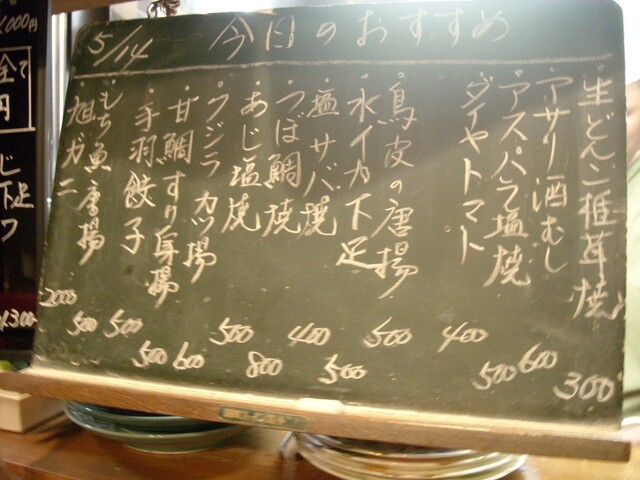 5/14 今日のおすすめ
・生どんこ椎茸焼 300
・アサリ酒むし 600
・アスパラ塩焼 500
・ダイヤトマト 400
・鳥皮の唐揚 500
・水イカ下足 500
・塩サバ焼 400
・つぼ鯛焼 800
・あじ塩焼 500
・クジラカツ揚 600
・甘鯛すり身揚 500
・手羽餃子 500
・もち魚唐揚 500
・旭ガニ 2000
000円
全て
円
下足